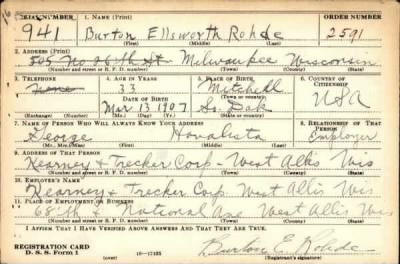 SERIAL NUMBER 1. NAME (Print) ORDER NUMBER
941 Burton Ellsworth Rohde 2591
(First) (Middle) (Last)
2. ADDRESS (Print)
No 26th St. Milwaukee Wisconsin
(Number and street or R. F. D. number) (Town) (County) (State)
3. TELEPHONE 4. AGE IN YEARS 5. PLACE OF BIRTH 6. COUNTRY OF CITIZENSHIP
None 33 Mitchell
DATE OF BIRTH (Town or county)
Mar. 13 1907 So. Dak USA
(Exchange) (Number) (Mo.) (Day) (Yr.) (State or country)
7. NAME OF PERSON WHO WILL ALWAYS KNOW YOUR ADDRESS 8. RELATIONSHIP OF THAT PERSON
George Employer
(Mr., Mrs., Miss) (First) (Middle) (Last)
9. ADDRESS OF THAT PERSON
Kearney & Trecker Corp - West Allis Wis
(Number and street or R. F. D. number) (Town) (County) (State)
10. EMPLOYER'S NAME
Kearney & Trecker Corp. West Allis Wis
11. PLACE OF EMPLOYMENT OR BUSINESS
68th & National Ave West Allis Wis
(Number and street or R. F. D. number) (Town) (County) (State)
I AFFIRM THAT I HAVE VERIFIED ABOVE ANSWERS AND THAT THEY ARE TRUE.
REGISTRATION CARD
D. S. S. Form 1 (over) 16-17105 Burton E. Rohde
(Registrant's signature)